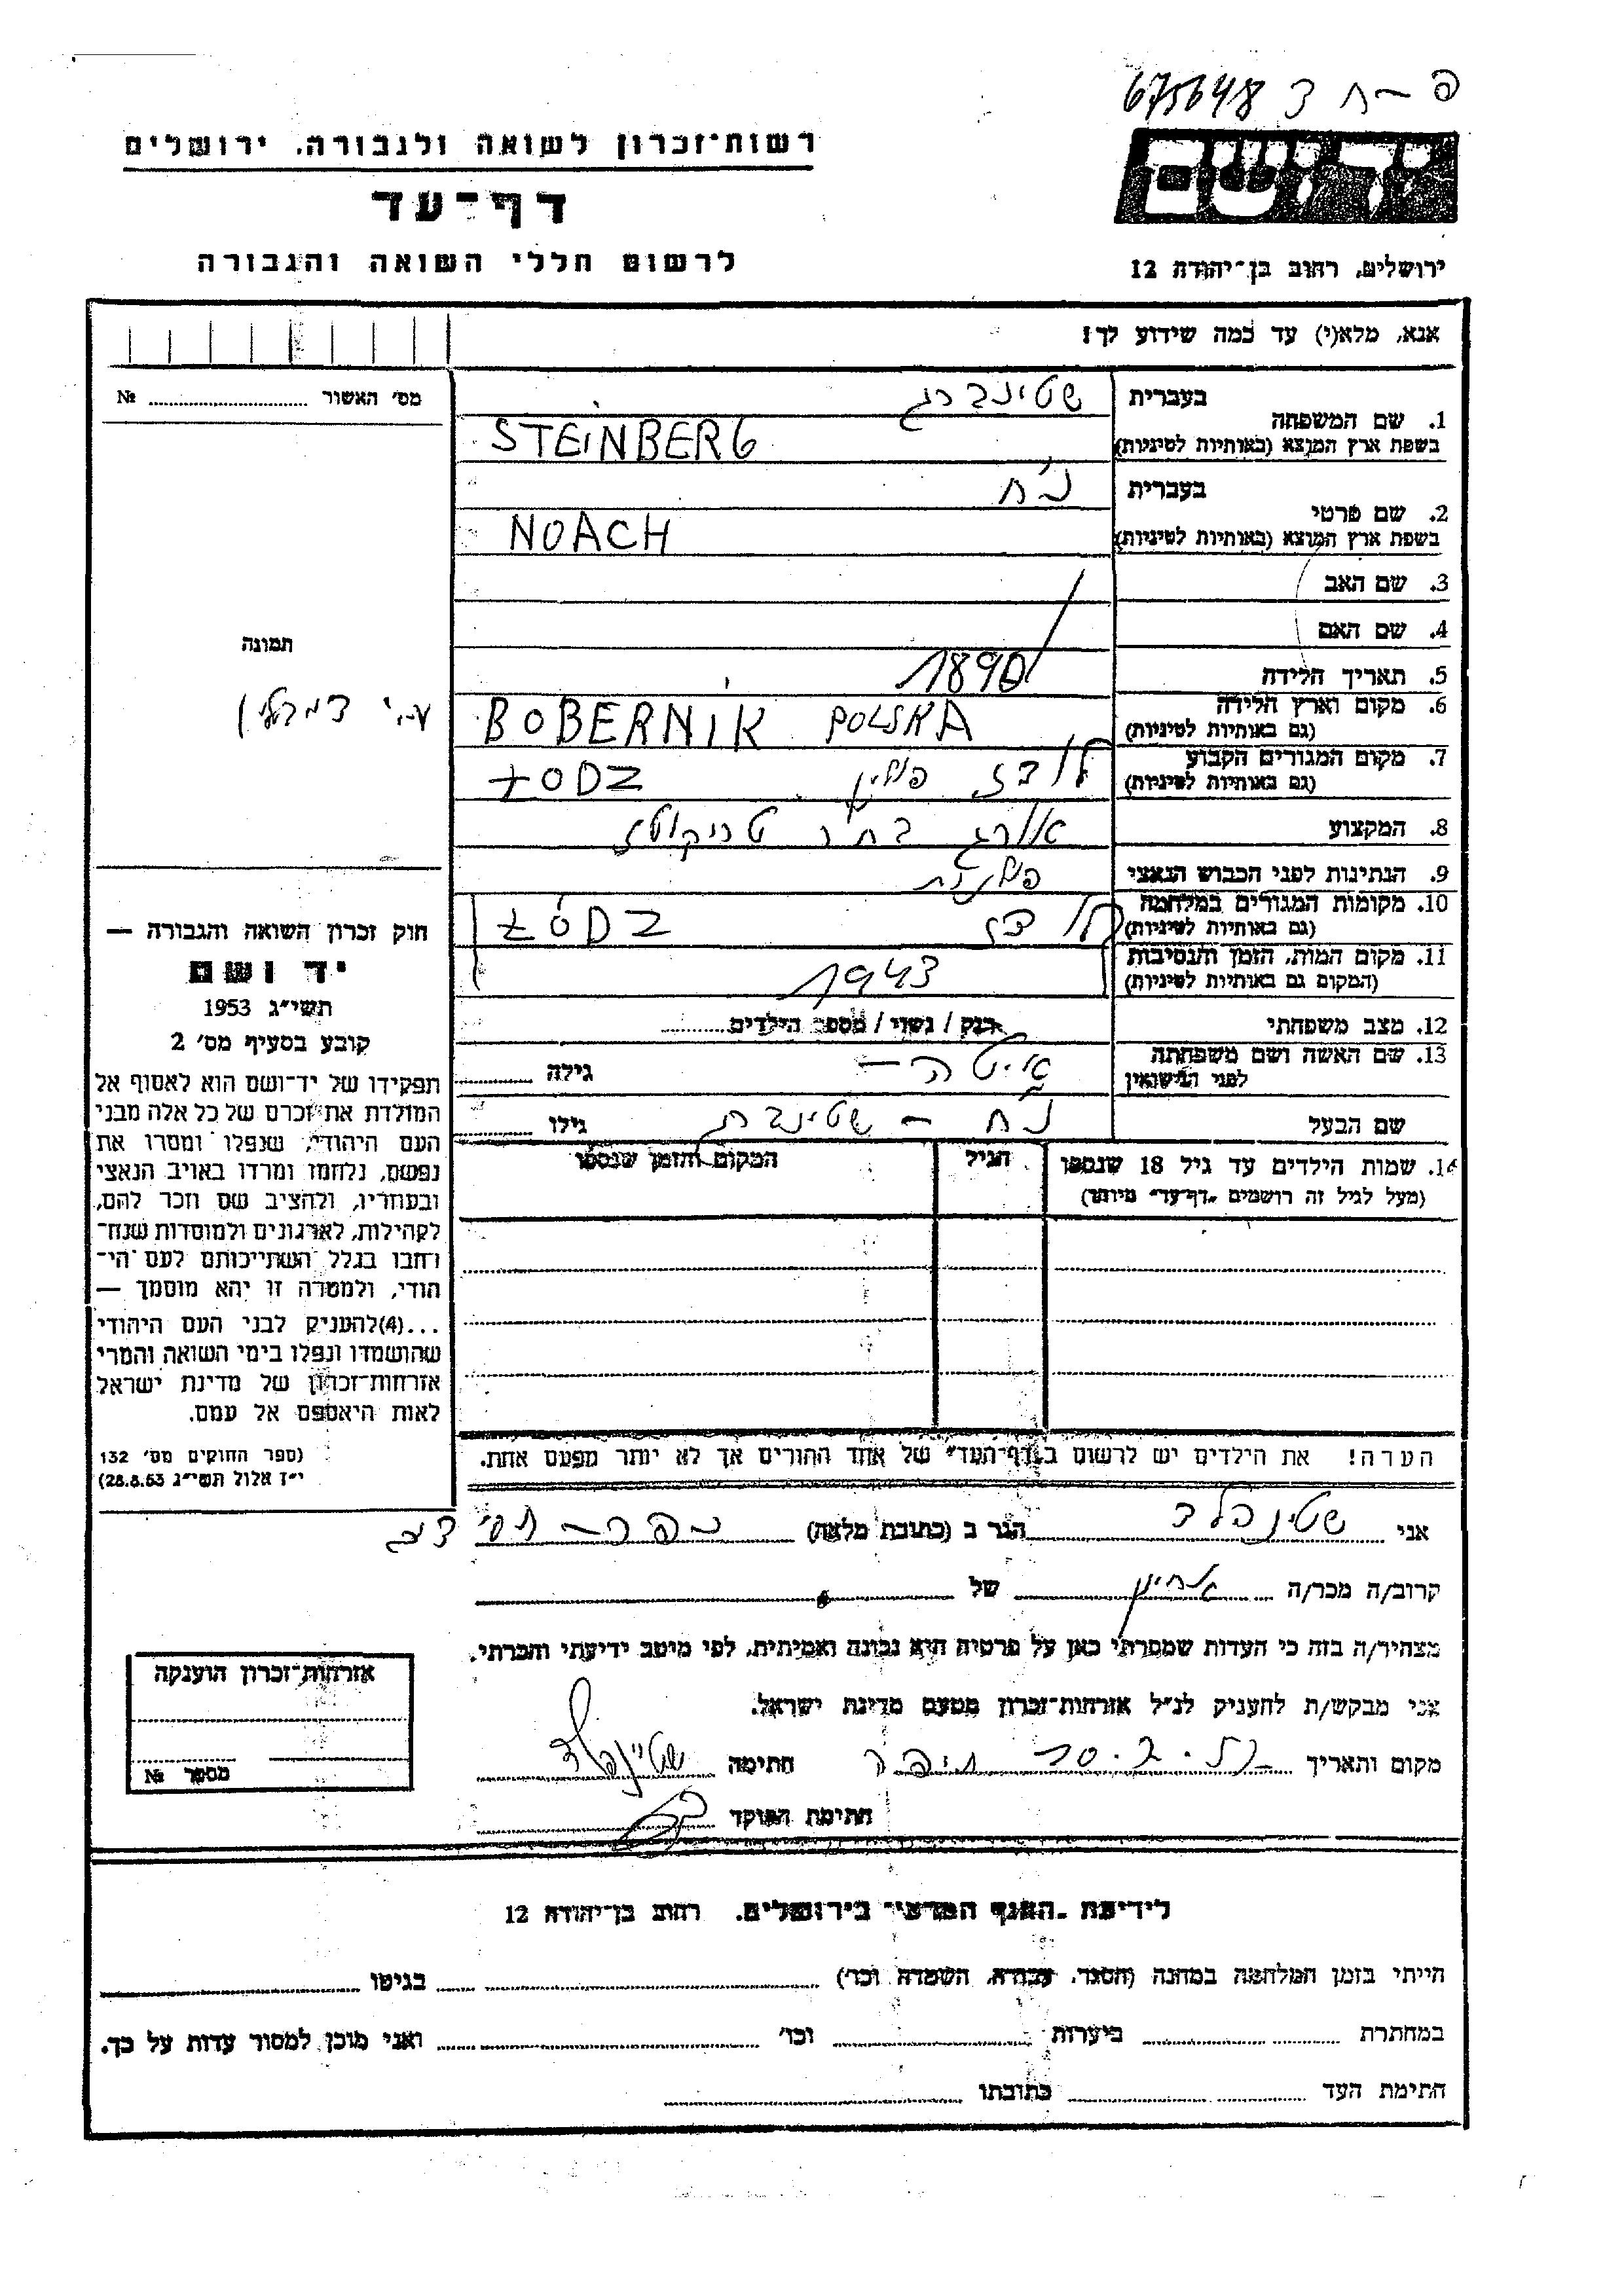 פ — ח 3 675648
יד ושם
ירושלים, רחוב בן־יהודה 12
רשות־זכרון לשואה ולגבורה, ירושלים
דף־עד
לרשום חללי השואה והגבורה
אנא, מלא(י) עד כמה שידוע לך!
מס׳ האשור № 
תמונה
1. שם המשפחה
בעברית שטינברג
בשפת ארץ המוצא (באותיות לטיניות) STEINBERG
2. שם פרטי
בעברית נח
בשפת ארץ המוצא (באותיות לטיניות) NOACH
3. שם האב
4. שם האם
5. תאריך הלידה 1890
6. מקום וארץ הלידה
(גם באותיות לטיניות) BOBERNIK POLSKA
7. מקום המגורים הקבוע
(גם באותיות לטיניות) לודז פולין ŁODZ
8. המקצוע אורג בח״ר טריקוטז
9. הנתינות לפני הכבוש הנאצי פולנית
10. מקומות המגורים במלחמה
(גם באותיות לטיניות) לודז ŁÓDZ
11. מקום המות, הזמן והנסיבות
(המקום גם באותיות לטיניות) 1943
12. מצב משפחתי רוק / נשוי / מספר הילדים
13. שם האשה ושם משפחתה
לפני הנישואין איטה — גילה
שם הבעל נח — שטינברג גילו
14. שמות הילדים עד גיל 18 שנספו
(מעל לגיל זה רושמים „דף־עד״ מיוחד)
הגיל
המקום והזמן שנספו
הערה! את הילדים יש לרשום ב„דף־העד״ של אחד ההורים אך לא יותר מפעם אחת.
חוק זכרון השואה והגבורה —
יד ושם
תשי״ג 1953
קובע בסעיף מס׳ 2
תפקידו של יד־ושם הוא לאסוף אל
המולדת את זכרם של כל אלה מבני
העם היהודי, שנפלו ומסרו את
נפשם, נלחמו ומרדו באויב הנאצי
ובעוזריו, ולהציב שם וזכר להם,
לקהילות, לארגונים ולמוסדות שנח־
רחבו בגלל השתייכותם לעם הי־
הודי, ולמטרה זו יהא מוסמך —
...(4)להעניק לבני העם היהודי
שהושמדו ונפלו בימי השואה והמרי
אזרחות־זכרון של מדינת ישראל
לאות היאספם אל עמם.
(ספר החוקים מס׳ 132
י״ז אלול תשי״ג 28.8.53)
אני שטינפלד הגר ב (כתובת מלאה)
קרוב/ה מכר/ה אחיין של
מצהיר/ה בזה כי העדות שמסרתי כאן על פרטיה היא נכונה ואמיתית, לפי מיטב ידיעתי והכרתי.
אני מבקש/ת להעניק לנ״ל אזרחות־זכרון מטעם מדינת ישראל.
מקום ותאריך חיפה חתימה שטיינפלד
חתימת הפוקד
אזרחות־זכרון הוענקה
מספר №
לידיעת „הענף המרכזי״ בירושלים, רחוב בן־יהודה 12
הייתי בזמן המלחמה במחנה (הסגר, עבודה, השמדה וכו׳) בגיטו
במחתרת ביערות וכו׳ ואני מוכן למסור עדות על כך.
חתימת העד כתובתו